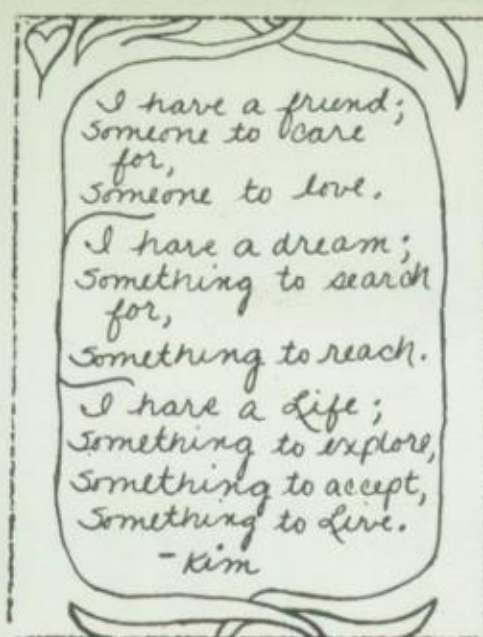 I have a friend;
Someone to care
for,
Someone to love.
I have a dream;
Something to search
for,
Something to reach.
I have a Life;
Something to explore,
Something to accept,
Something to Live.
- Kim